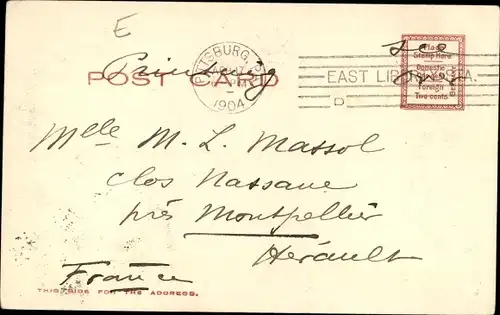 E
PITTSBURG, PA.
1904
EAST LIBERTY STA.
D
POST CARD
Place
Stamp Here
Domestic
Foreign
Two cents
Mlle M. L. Massol
clos Nassane
près Montpellier
Hérault
France
THIS SIDE FOR THE ADDRESS.